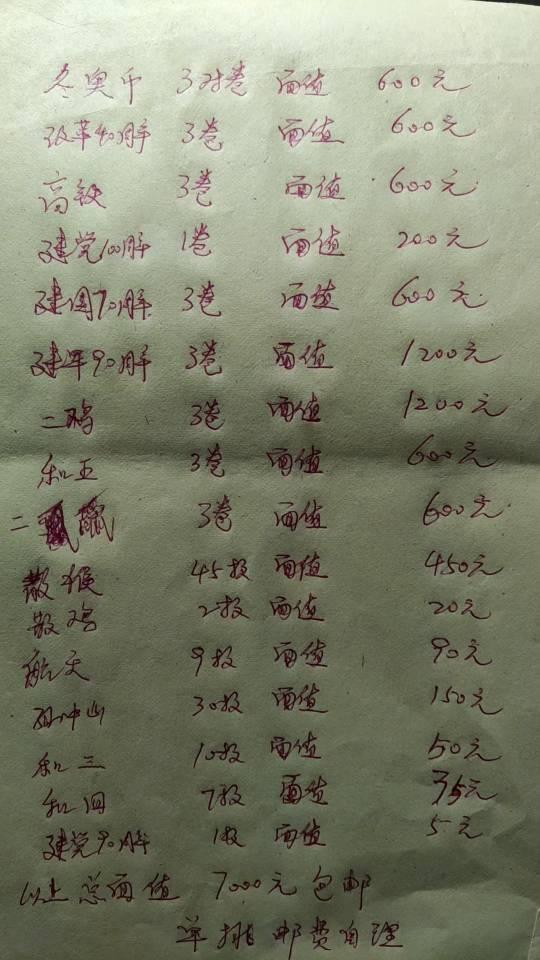 冬奥币 3对卷 面值 600元
改革40周年 3卷 面值 600元
高铁 3卷 面值 600元
建党100周年 1卷 面值 200元
建国70周年 3卷 面值 600元
建军90周年 3卷 面值 1200元
二鸡 3卷 面值 1200元
和五 3卷 面值 600元
二 3卷 面值 600元
散猴 45枚 面值 450元
散鸡 2枚 面值 20元
航天 9枚 面值 90元
孙中山 30枚 面值 150元
和三 10枚 面值 50元
和四 7枚 面值 35元
建党90周年 1枚 面值 5元
以上总面值 7000元包邮
单挑邮费自理